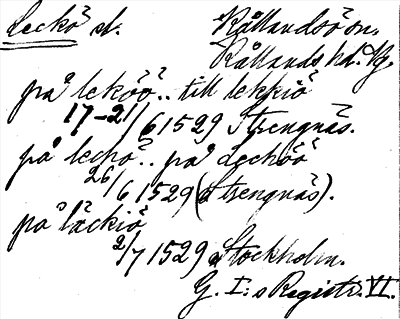 Leckö sl. Kållandsö sn.
Kållands hd. Vg.
på leköö.. till lekkiö
17-21/6 1529 Strengnäs.
på lechö.. på lechöö
26/6 1529 (Strengnäs).
på läckiö
2/7 1529 Stockholm.
G. I:s Registr. VI.